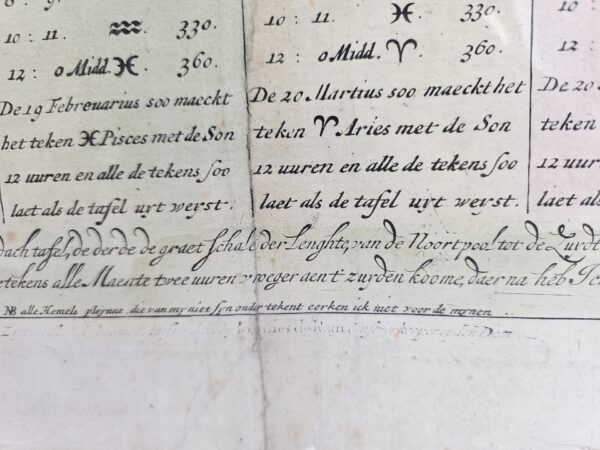 8 : 9.
10 : 11. ♒. 330.
12 : 0 Midd. ♓. 360.
De 19 Febreuarius soo maeckt
het teken ♓ Pisces met de Son
12 uuren en alle de tekens soo
laet als de tafel uyt weyst.
10 : 11. ♓ 330.
12 : 0 Midd. ♈. 360.
De 20 Martius soo maeckt het
teken ♈ Aries met de Son
12 uuren en alle de tekens soo
laet als de tafel uyt weyst.
10 :
12 :
De 20
teken
12 uuren
laet als
dach tafel, de derde de graet schale der Lenghte, van de Noortpool tot de Zurdt
tekens alle Maente twee uuren vroeger aent zuyden koome, daer na heb
NB alle Hemels pleyne die van my niet syn onder tekent eerken ick niet voor de mynen